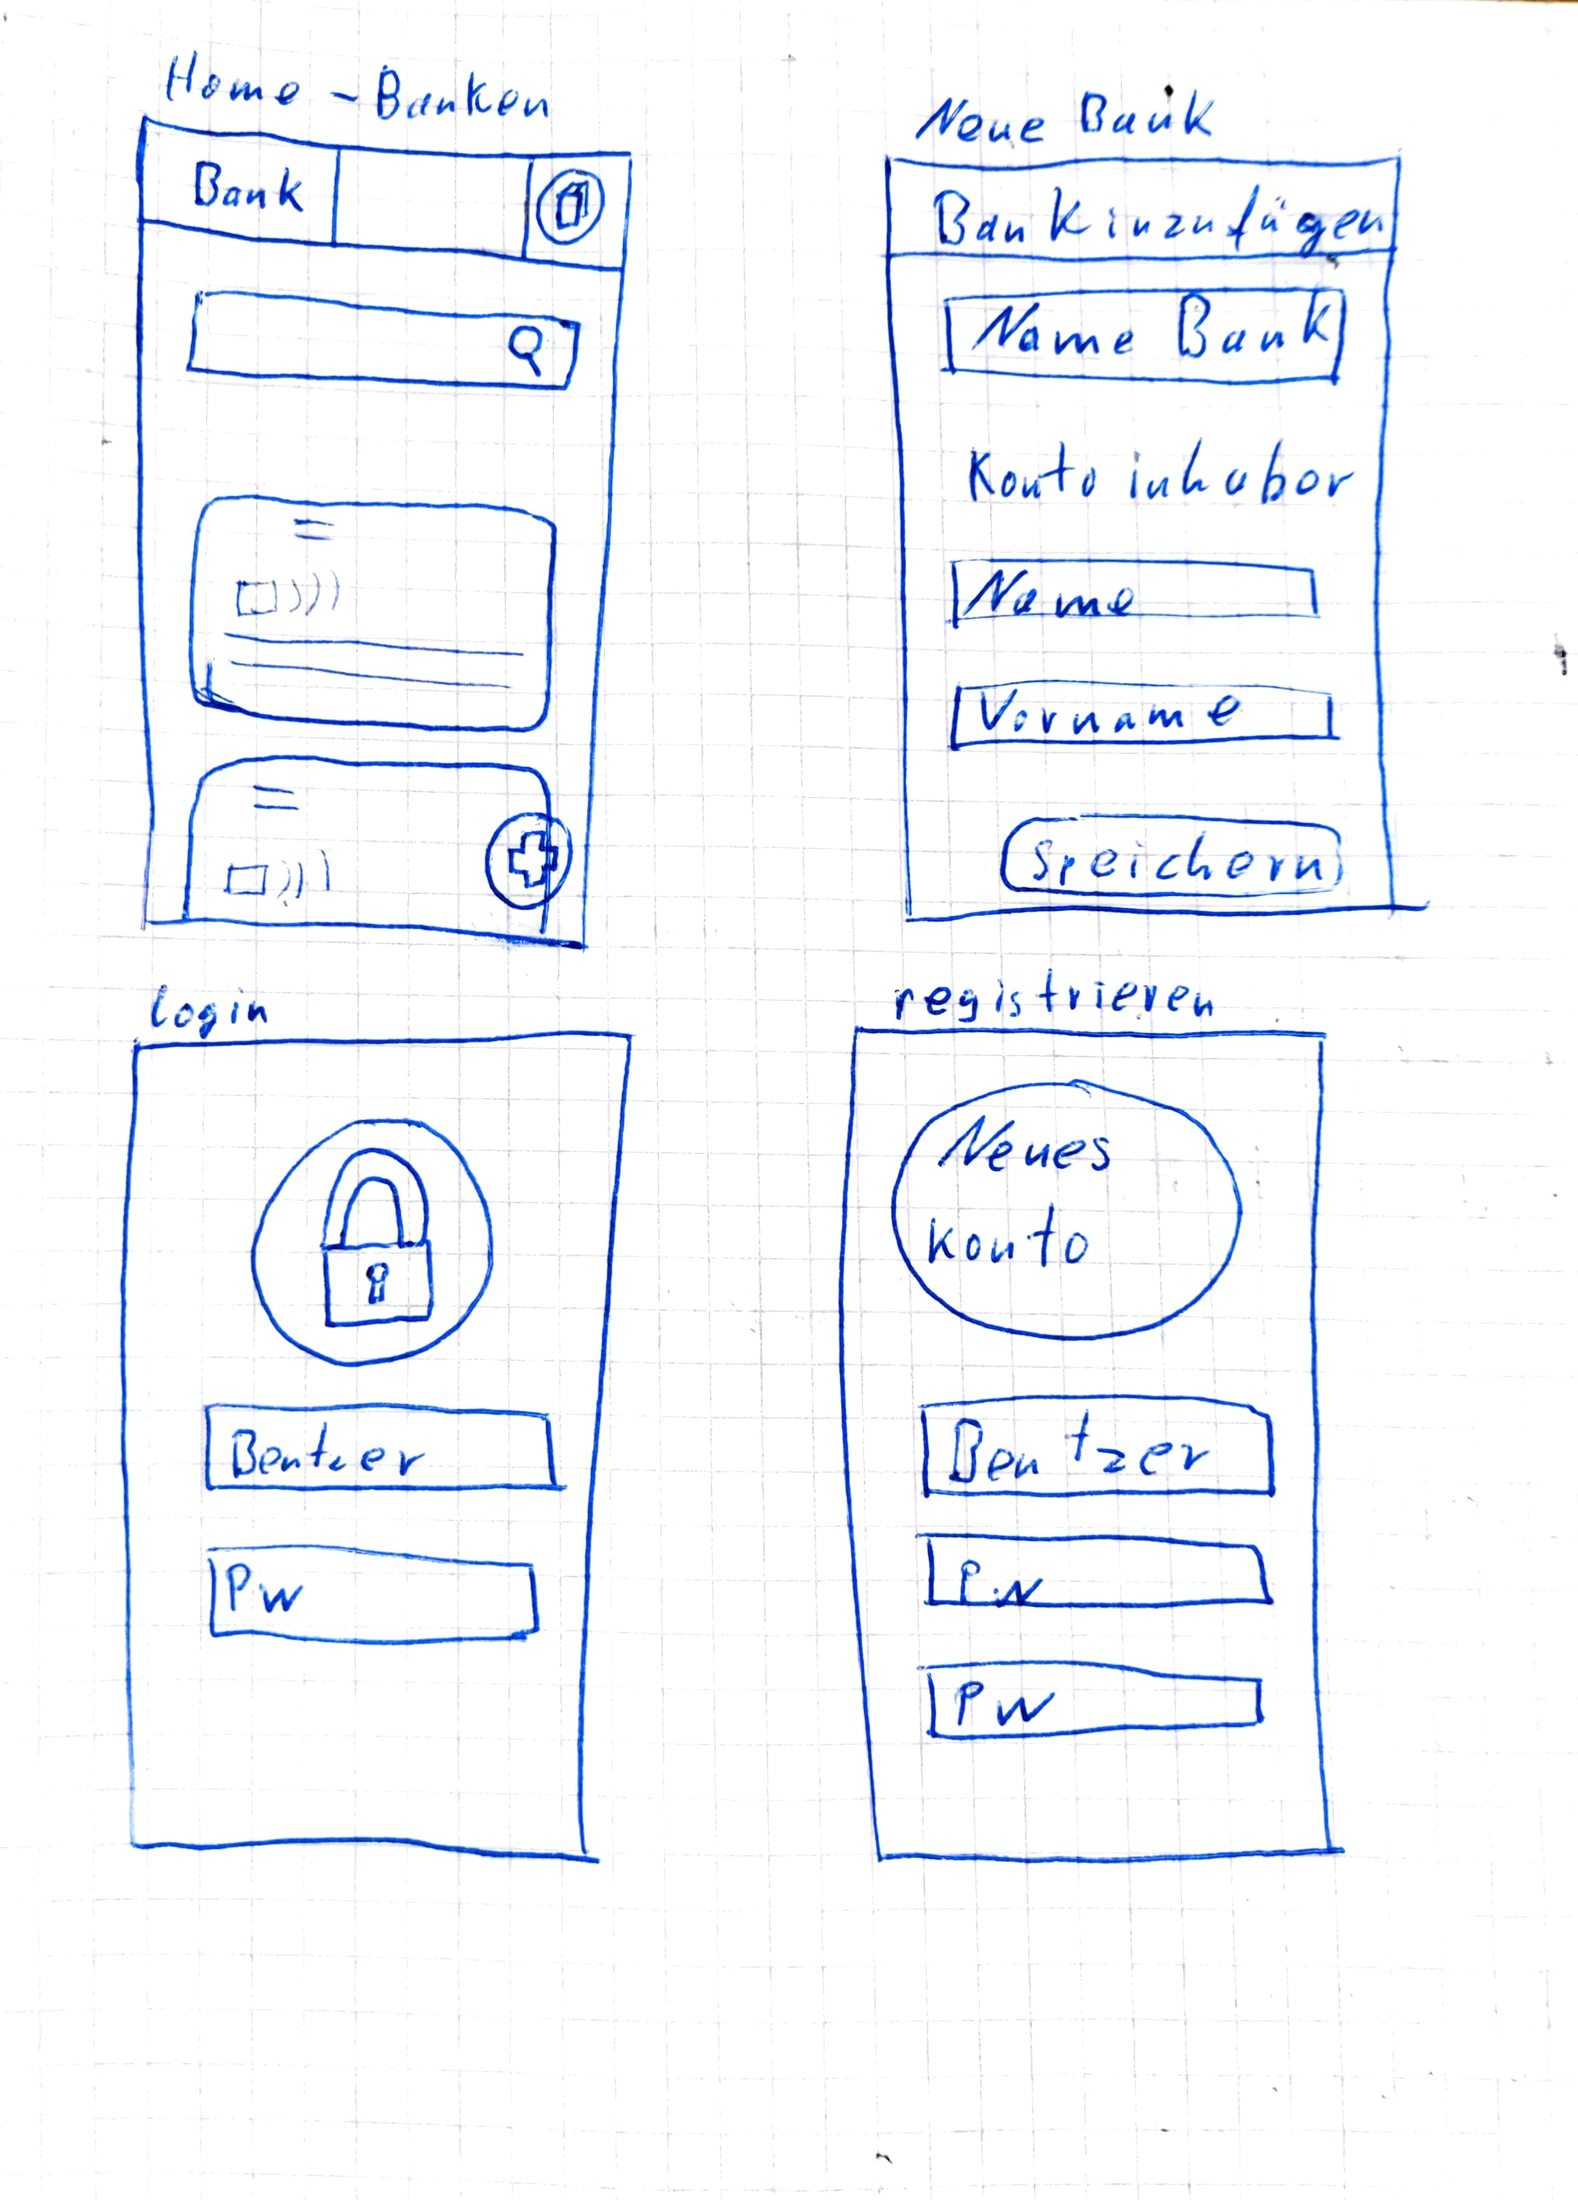 Home - Banken
Bank
Neue Bank
Bank inzufügen
Name Bank
Kontoinhaber
Name
Vorname
Speichern
login
Bentzer
PW
registrieren
Neues
Konto
Bentzer
PW
PW